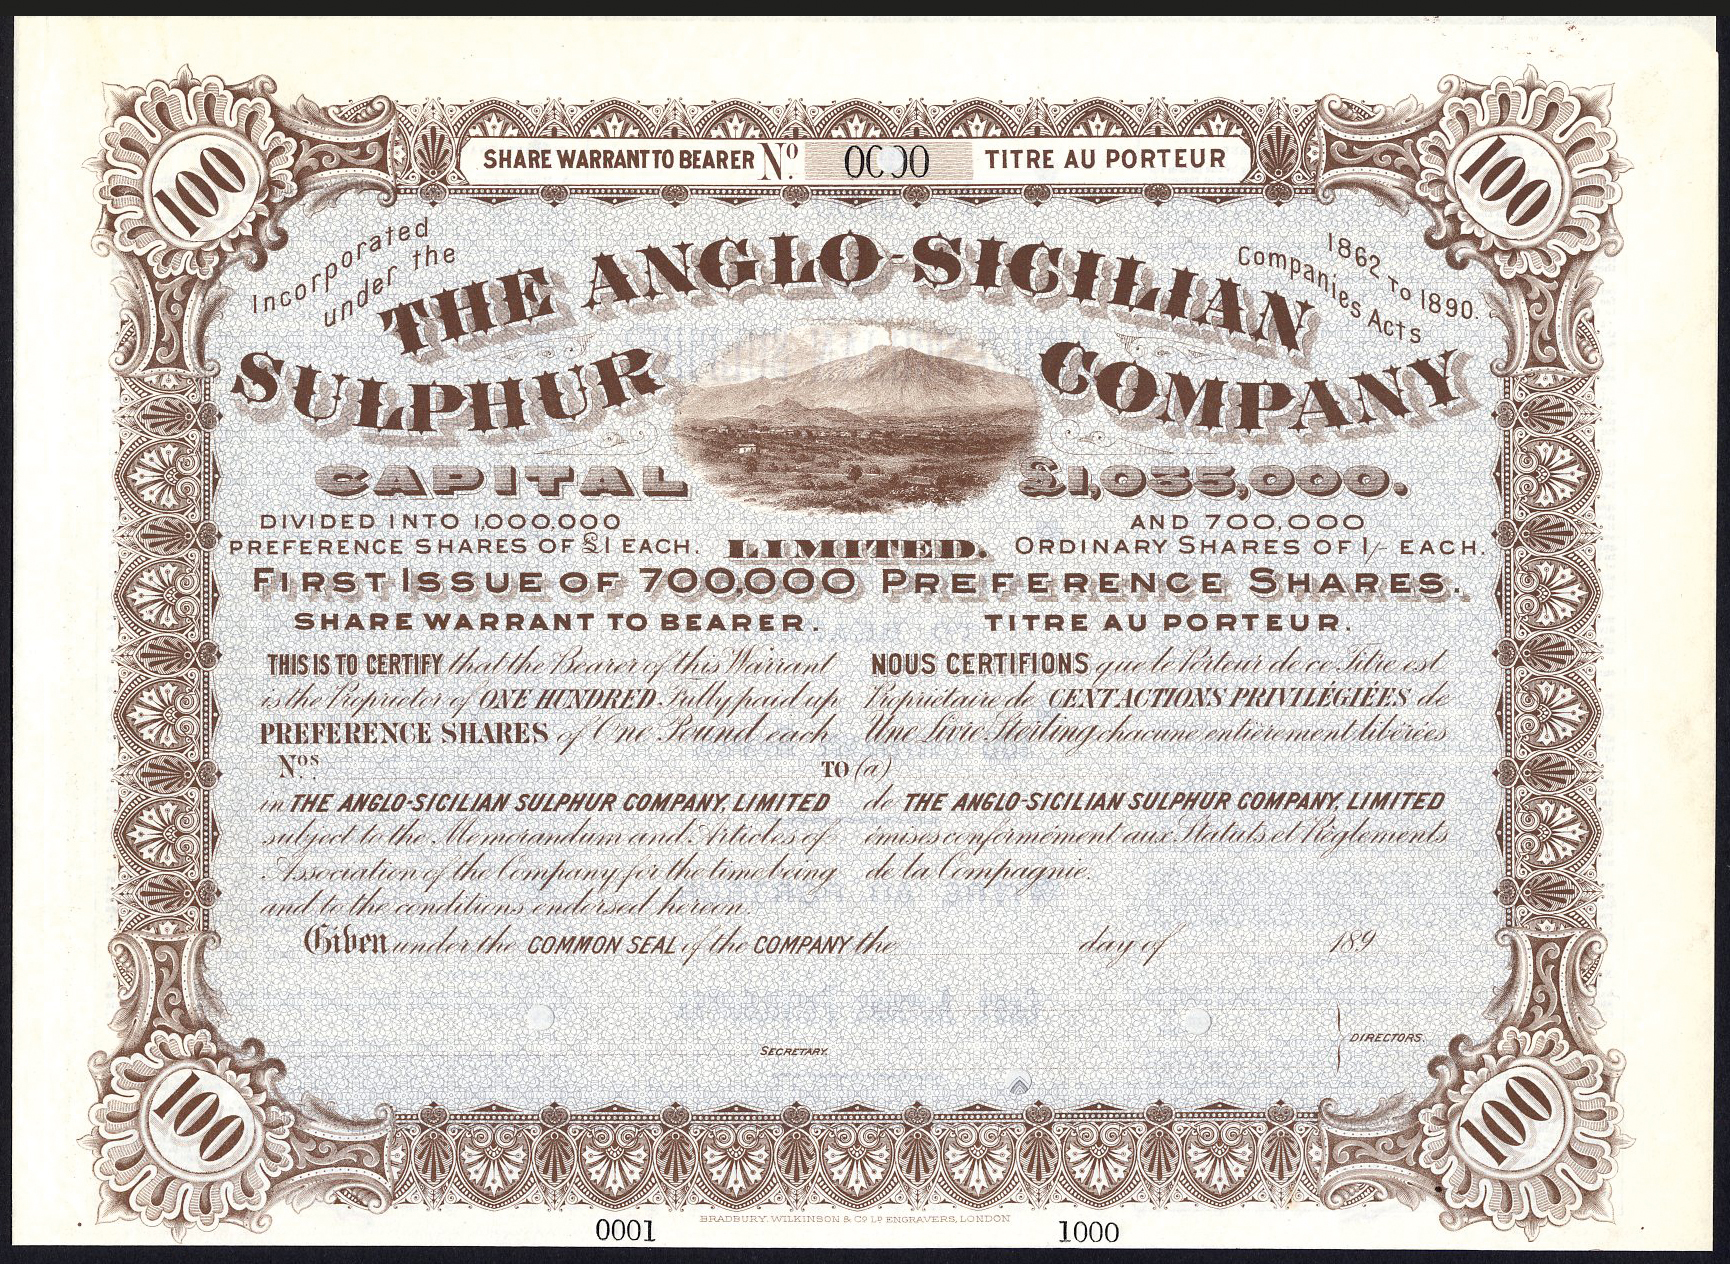 SHARE WARRANT TO BEARER No. 0000 TITRE AU PORTEUR
100
100
Incorporated under the
Companies Acts 1862 to 1890.
THE ANGLO-SICILIAN
SULPHUR COMPANY
CAPITAL £1,035,000.
DIVIDED INTO 1,000,000
PREFERENCE SHARES OF £1 EACH.
AND 700,000
ORDINARY SHARES OF 1/- EACH.
LIMITED.
FIRST ISSUE OF 700,000 PREFERENCE SHARES.
SHARE WARRANT TO BEARER.
THIS IS TO CERTIFY that the Bearer of this Warrant
is the Proprietor of ONE HUNDRED Fully paid up
PREFERENCE SHARES of One Pound each
Nos. TO (a)
in THE ANGLO-SICILIAN SULPHUR COMPANY, LIMITED
subject to the Memorandum and Articles of
Association of the Company for the time being
and to the conditions endorsed hereon.
TITRE AU PORTEUR.
NOUS CERTIFIONS que le Porteur de ce Titre est
Propriétaire de CENT ACTIONS PRIVILÉGIÉES de
Une Livre Sterling chacune entièrement libérées
de THE ANGLO-SICILIAN SULPHUR COMPANY, LIMITED
émises conformément aux Statuts et Règlements
de la Compagnie.
Given under the COMMON SEAL of the COMPANY the day of 189
SECRETARY.
DIRECTORS.
100
100
BRADBURY, WILKINSON & Co. Ld. ENGRAVERS, LONDON
0001 1000